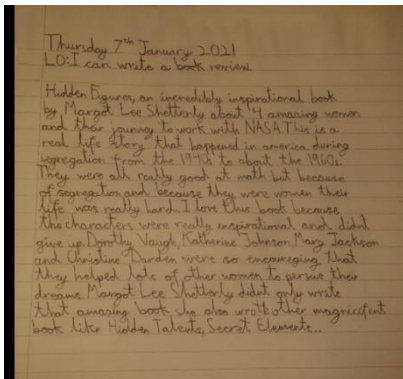 Thursday 7th January 2021
LO: I can write a book review
Hidden Figures, an incredibly inspirational book
by Margot Lee Shetterly about 4 amazing women
and their journey to work with NASA. This is a
real life story that happened in america during
segregation from the 1940s to about the 1960s.
They were all really good at math but because
of segregation and because they were women their
life was really hard. I love this book because
the characters were really inspirational and didnt
give up. Dorothy Vaugh, Katherine Johnson, Mary Jackson
and Christine Darden were so encoureging that
they helped lots of other women to persue their
dreams. Margot Lee Shetterly didnt only write
that amazing book, she also wrote other magnicifent
book like Hidden Talents, Secret Elements...